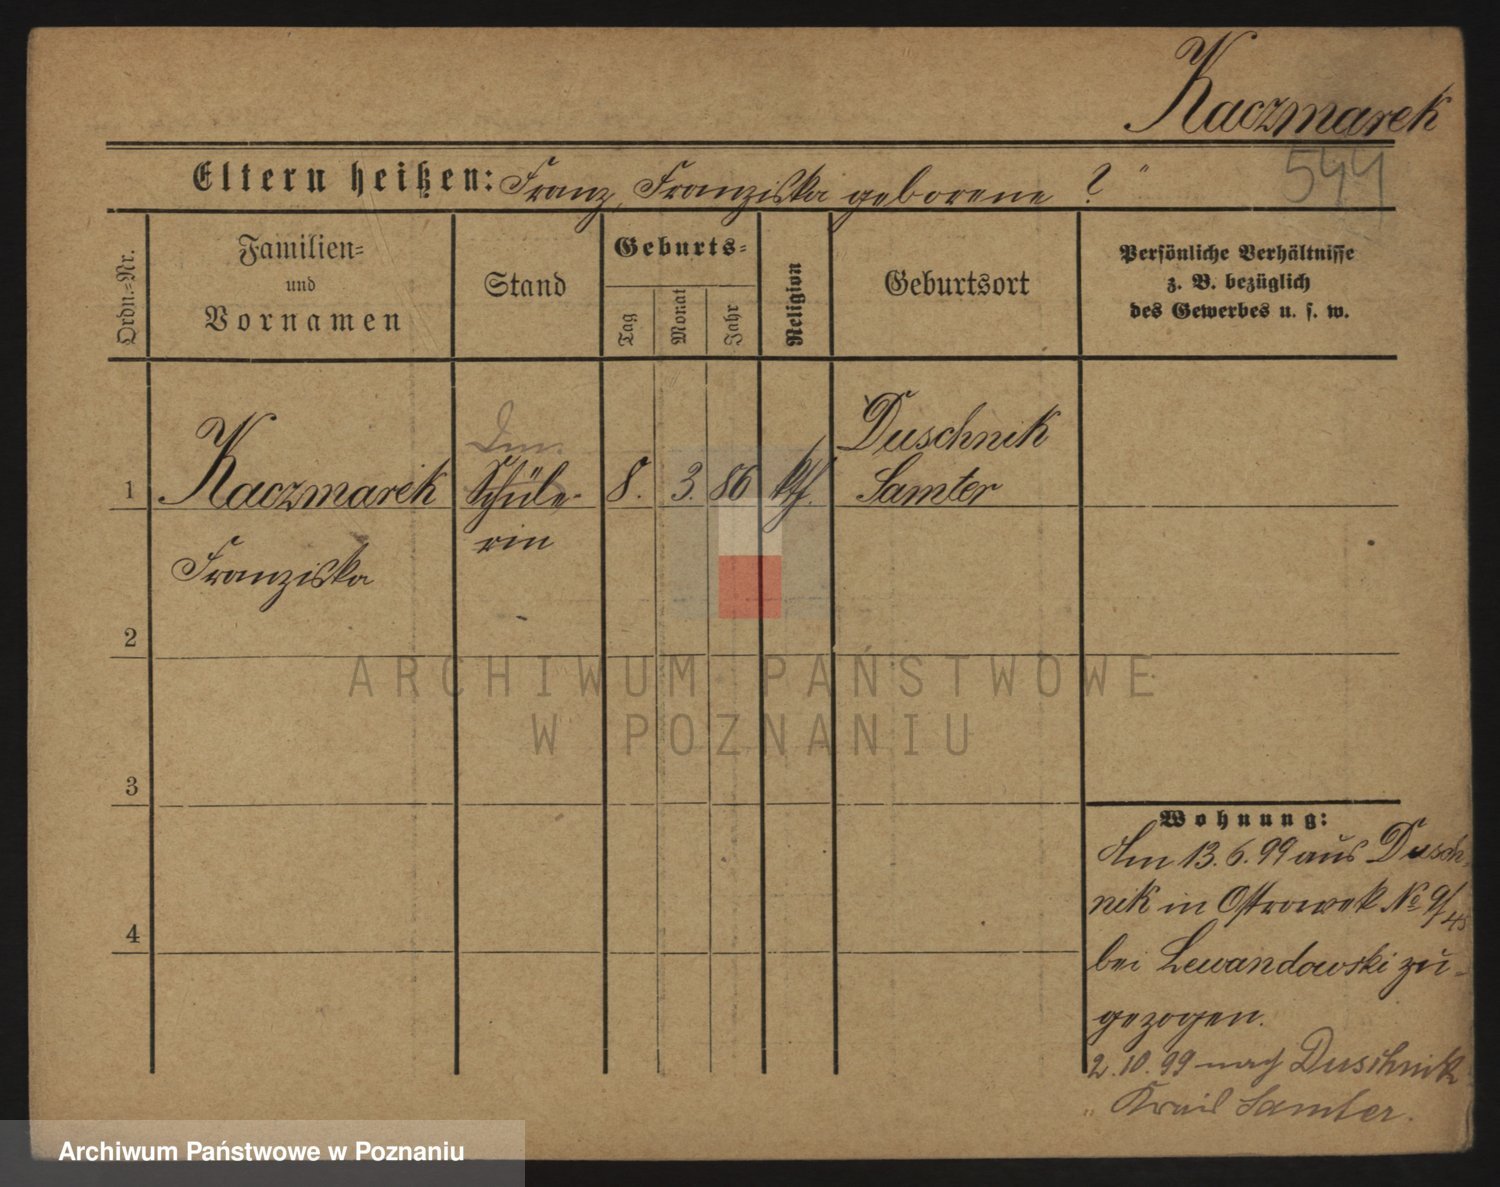 Kaczmarek
544
Eltern heißen: Franz, Franziska geborene ?
Ordn.-Nr.
Familien-
und
Vornamen
Stand
Geburts-
Tag
Monat
Jahr
Religion
Geburtsort
Persönliche Verhältnisse
z. B. bezüglich
des Gewerbes u. s. w.
1
Kaczmarek
Franziska
Schüle-
rin
8. 3. 86
kth.
Duschnik
Samter
2
3
4
Wohnung:
Am 13.6.99 aus Dusch-
nik in Ostrowek No 9/45
bei Lewandowski zu-
gezogen.
2.10.99 nach Duschnik
Kreis Samter.
ARCHIWUM PAŃSTWOWE
W POZNANIU
Archiwum Państwowe w Poznaniu